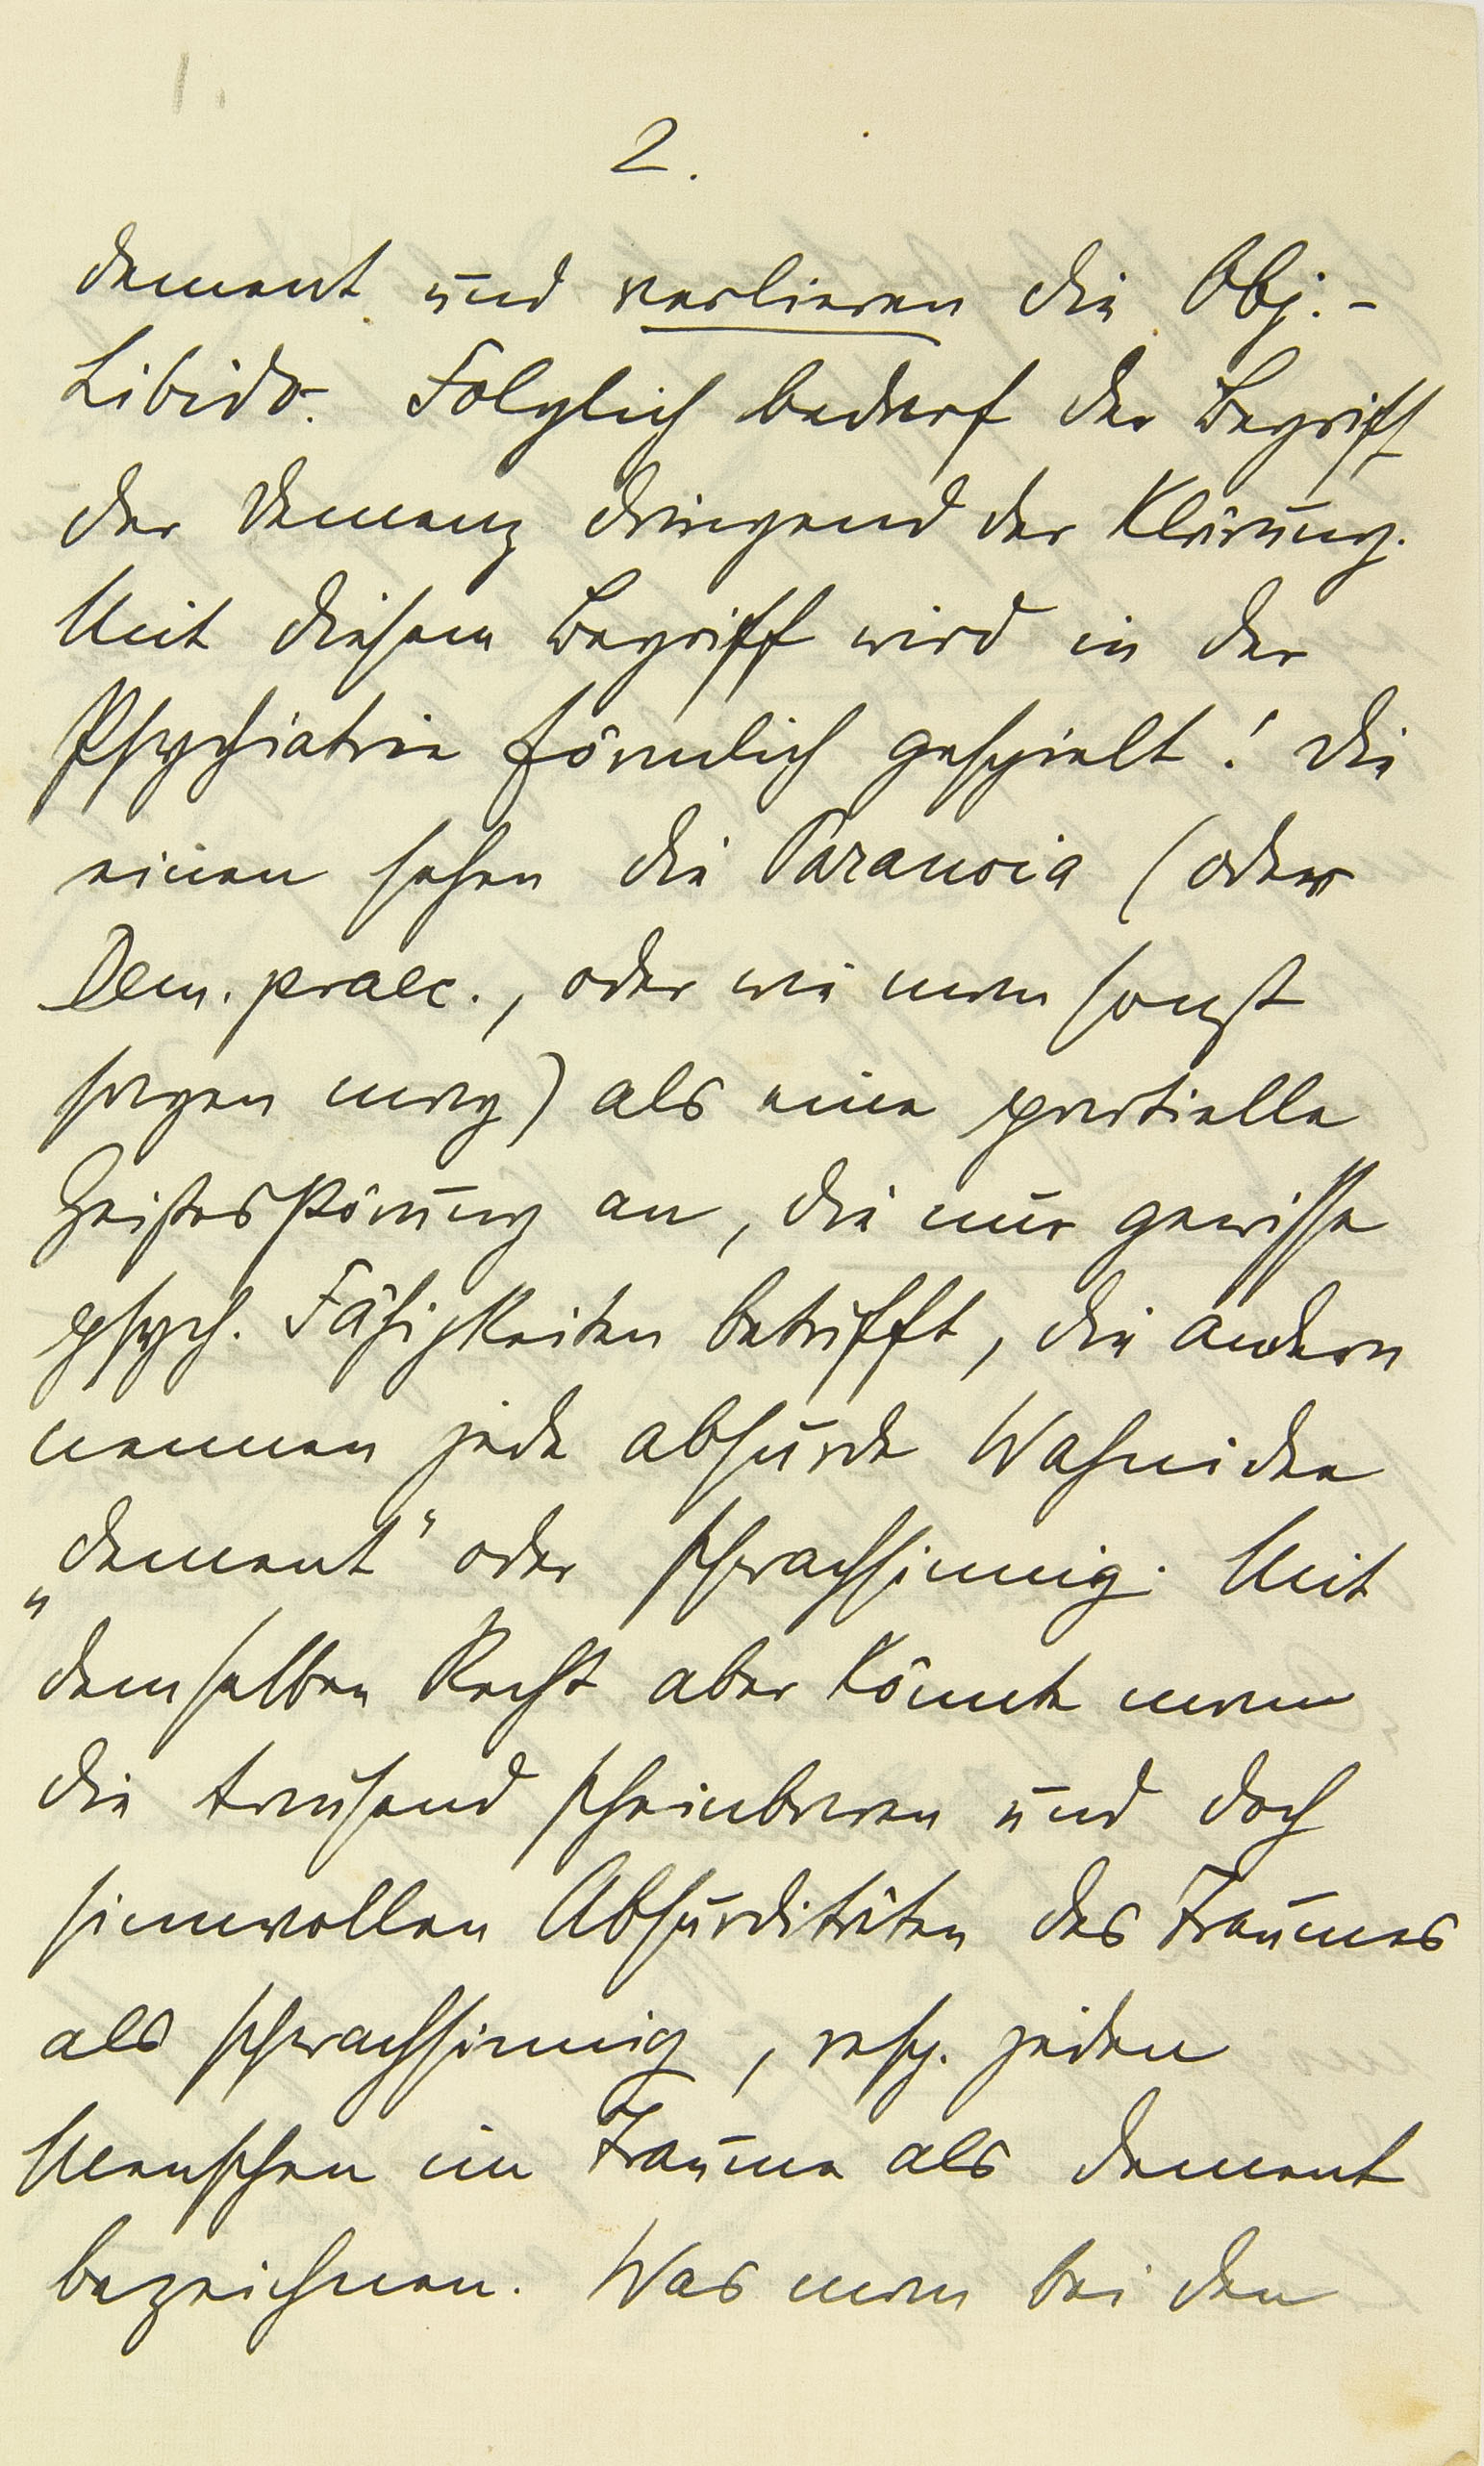 2.
dement und verlieren die Obj.-
Libido. Folglich bedarf der Begriff
der Demenz dringend der Klärung.
Mit diesem Begriff wird in der
Psychiatrie förmlich gespielt! Die
einen sehen die Paranoia (oder
Dem. praec., oder wie man sonst
sagen mag) als eine partielle
Geistesstörung an, die nur gewisse
psych. Fähigkeiten betrifft, die andern
nennen jede absurde Wahnidee
„dement" oder schwachsinnig. Mit
demselben Recht aber könnte man
die tausend scheinbaren und doch
sinnvollen Absurditäten des Traumes
als schwachsinnig, resp. jeden
Menschen im Traume als dement
bezeichnen. Was man bei den